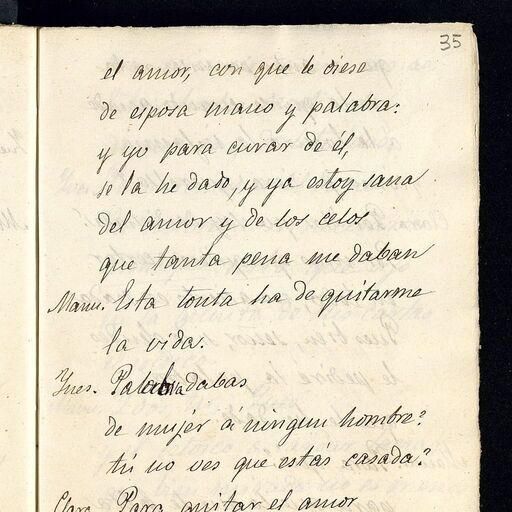 35
el amor, con que le diese
de esposa mano y palabra:
y yo para curar de él,
se la he dado, y ya estoy sana
del amor y de los celos
que tanta pena me daban
Manu. Esta tonta ha de quitarme
la vida.
Ynes. Palabra dabas
de mujer a ningun hombre?
tú no ves que estás casada?
Clara. Para quitar el amor